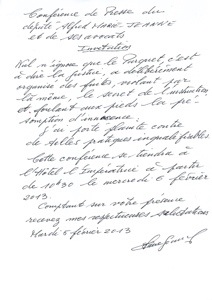 Conférence de Presse du
député Alfred MARIE-JEANNE
et de ses avocats
Invitation
Nul n'ignore que le Parquet, c'est
à dire la justice, a délibérément
organisé des fuites, violant par
là même, le secret de l'instruction
et foulant aux pieds la pré-
somption d'innocence.
J'ai porté plainte contre
de telles pratiques inqualifiables
Cette conférence, se tiendra à
l'Hôtel l'Impératrice à partir
de 10h30 le mercredi 6 février
2013.
Comptant sur votre présence
recevez mes respectueuses salutations
Mardi 5 février 2013